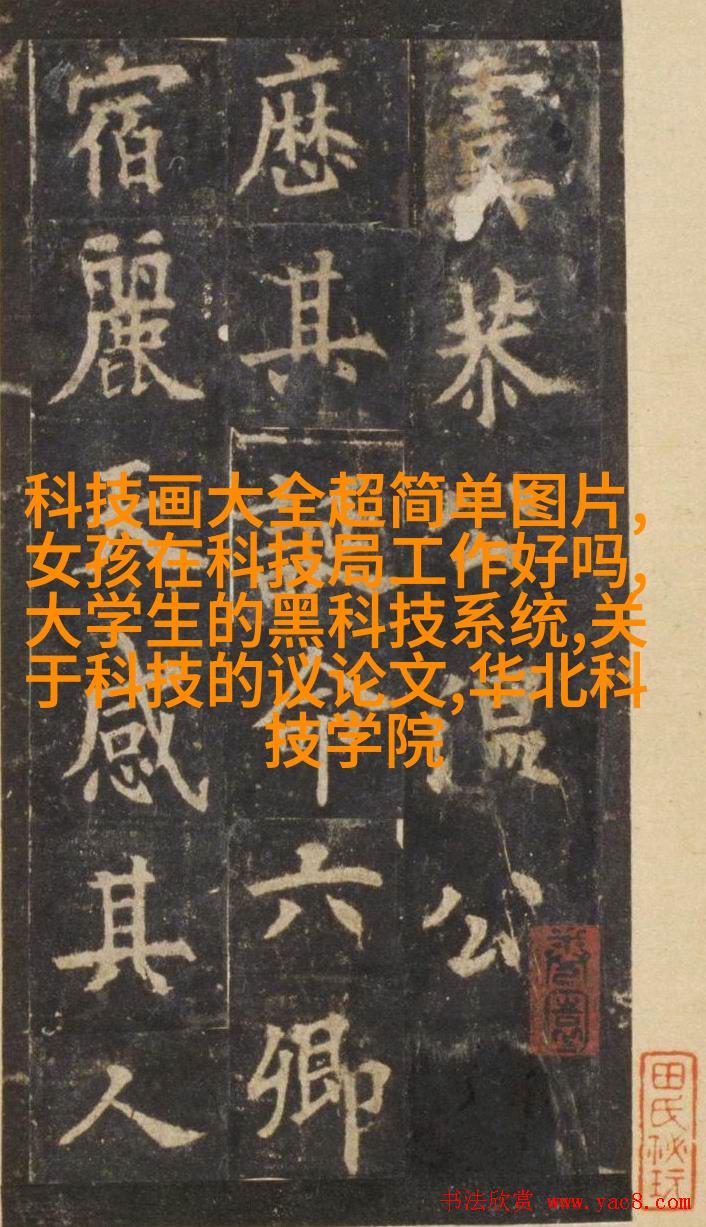 恭 温公
歷其 命六卿
宿麗天感其人
科技画大全超简单图片,
女孩在科技局工作好吗,
大学生的黑科技系统,关
于科技的议论文,华北科
技学院
田氏秘玩
书法欣赏 www.yac8.com